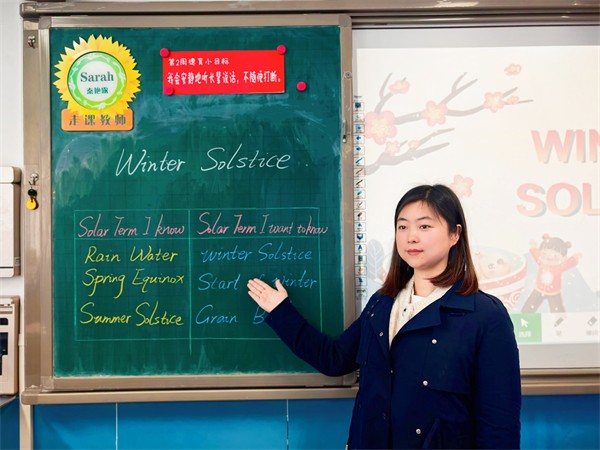 Sarah
走课教师
第2周德育小目标
我会安静地听长辈说话,不随便打断。
Winter Solstice
Solar Term I know
Solar Term I want to know
Rain Water
Winter Solstice
Spring Equinox
Start Winter
Summer Solstice
Grain B
WIN
SOL